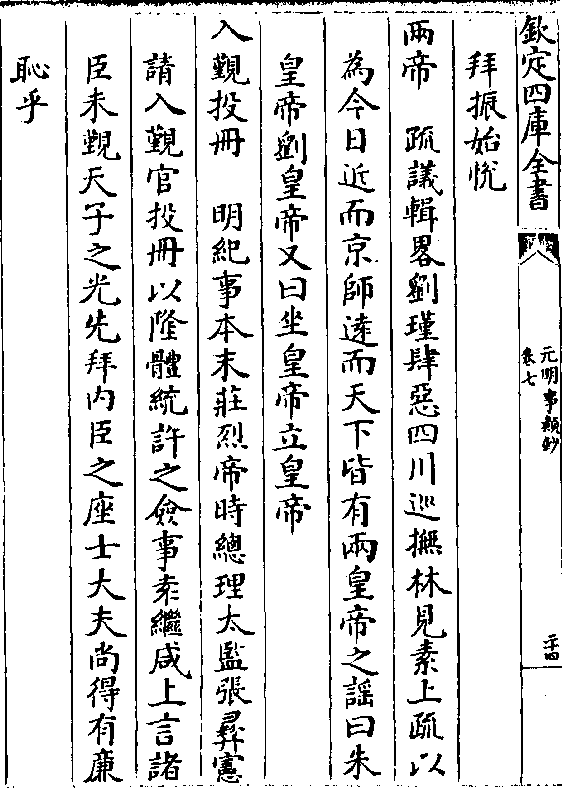 欽定四庫全書
元明事類鈔
卷七
二十四
拜振始悅
兩帝　疏議輯畧劉瑾肆惡四川巡撫林見素上疏以
為今日近而京師遠而天下皆有兩皇帝之謡曰朱
皇帝劉皇帝又曰坐皇帝立皇帝
入覲投冊　明紀事本末莊烈帝時總理太監張彝憲
請入覲官投冊以隆體統許之僉事袁繼咸上言諸
臣未覲天子之光先拜内臣之座士大夫尚得有廉
恥乎